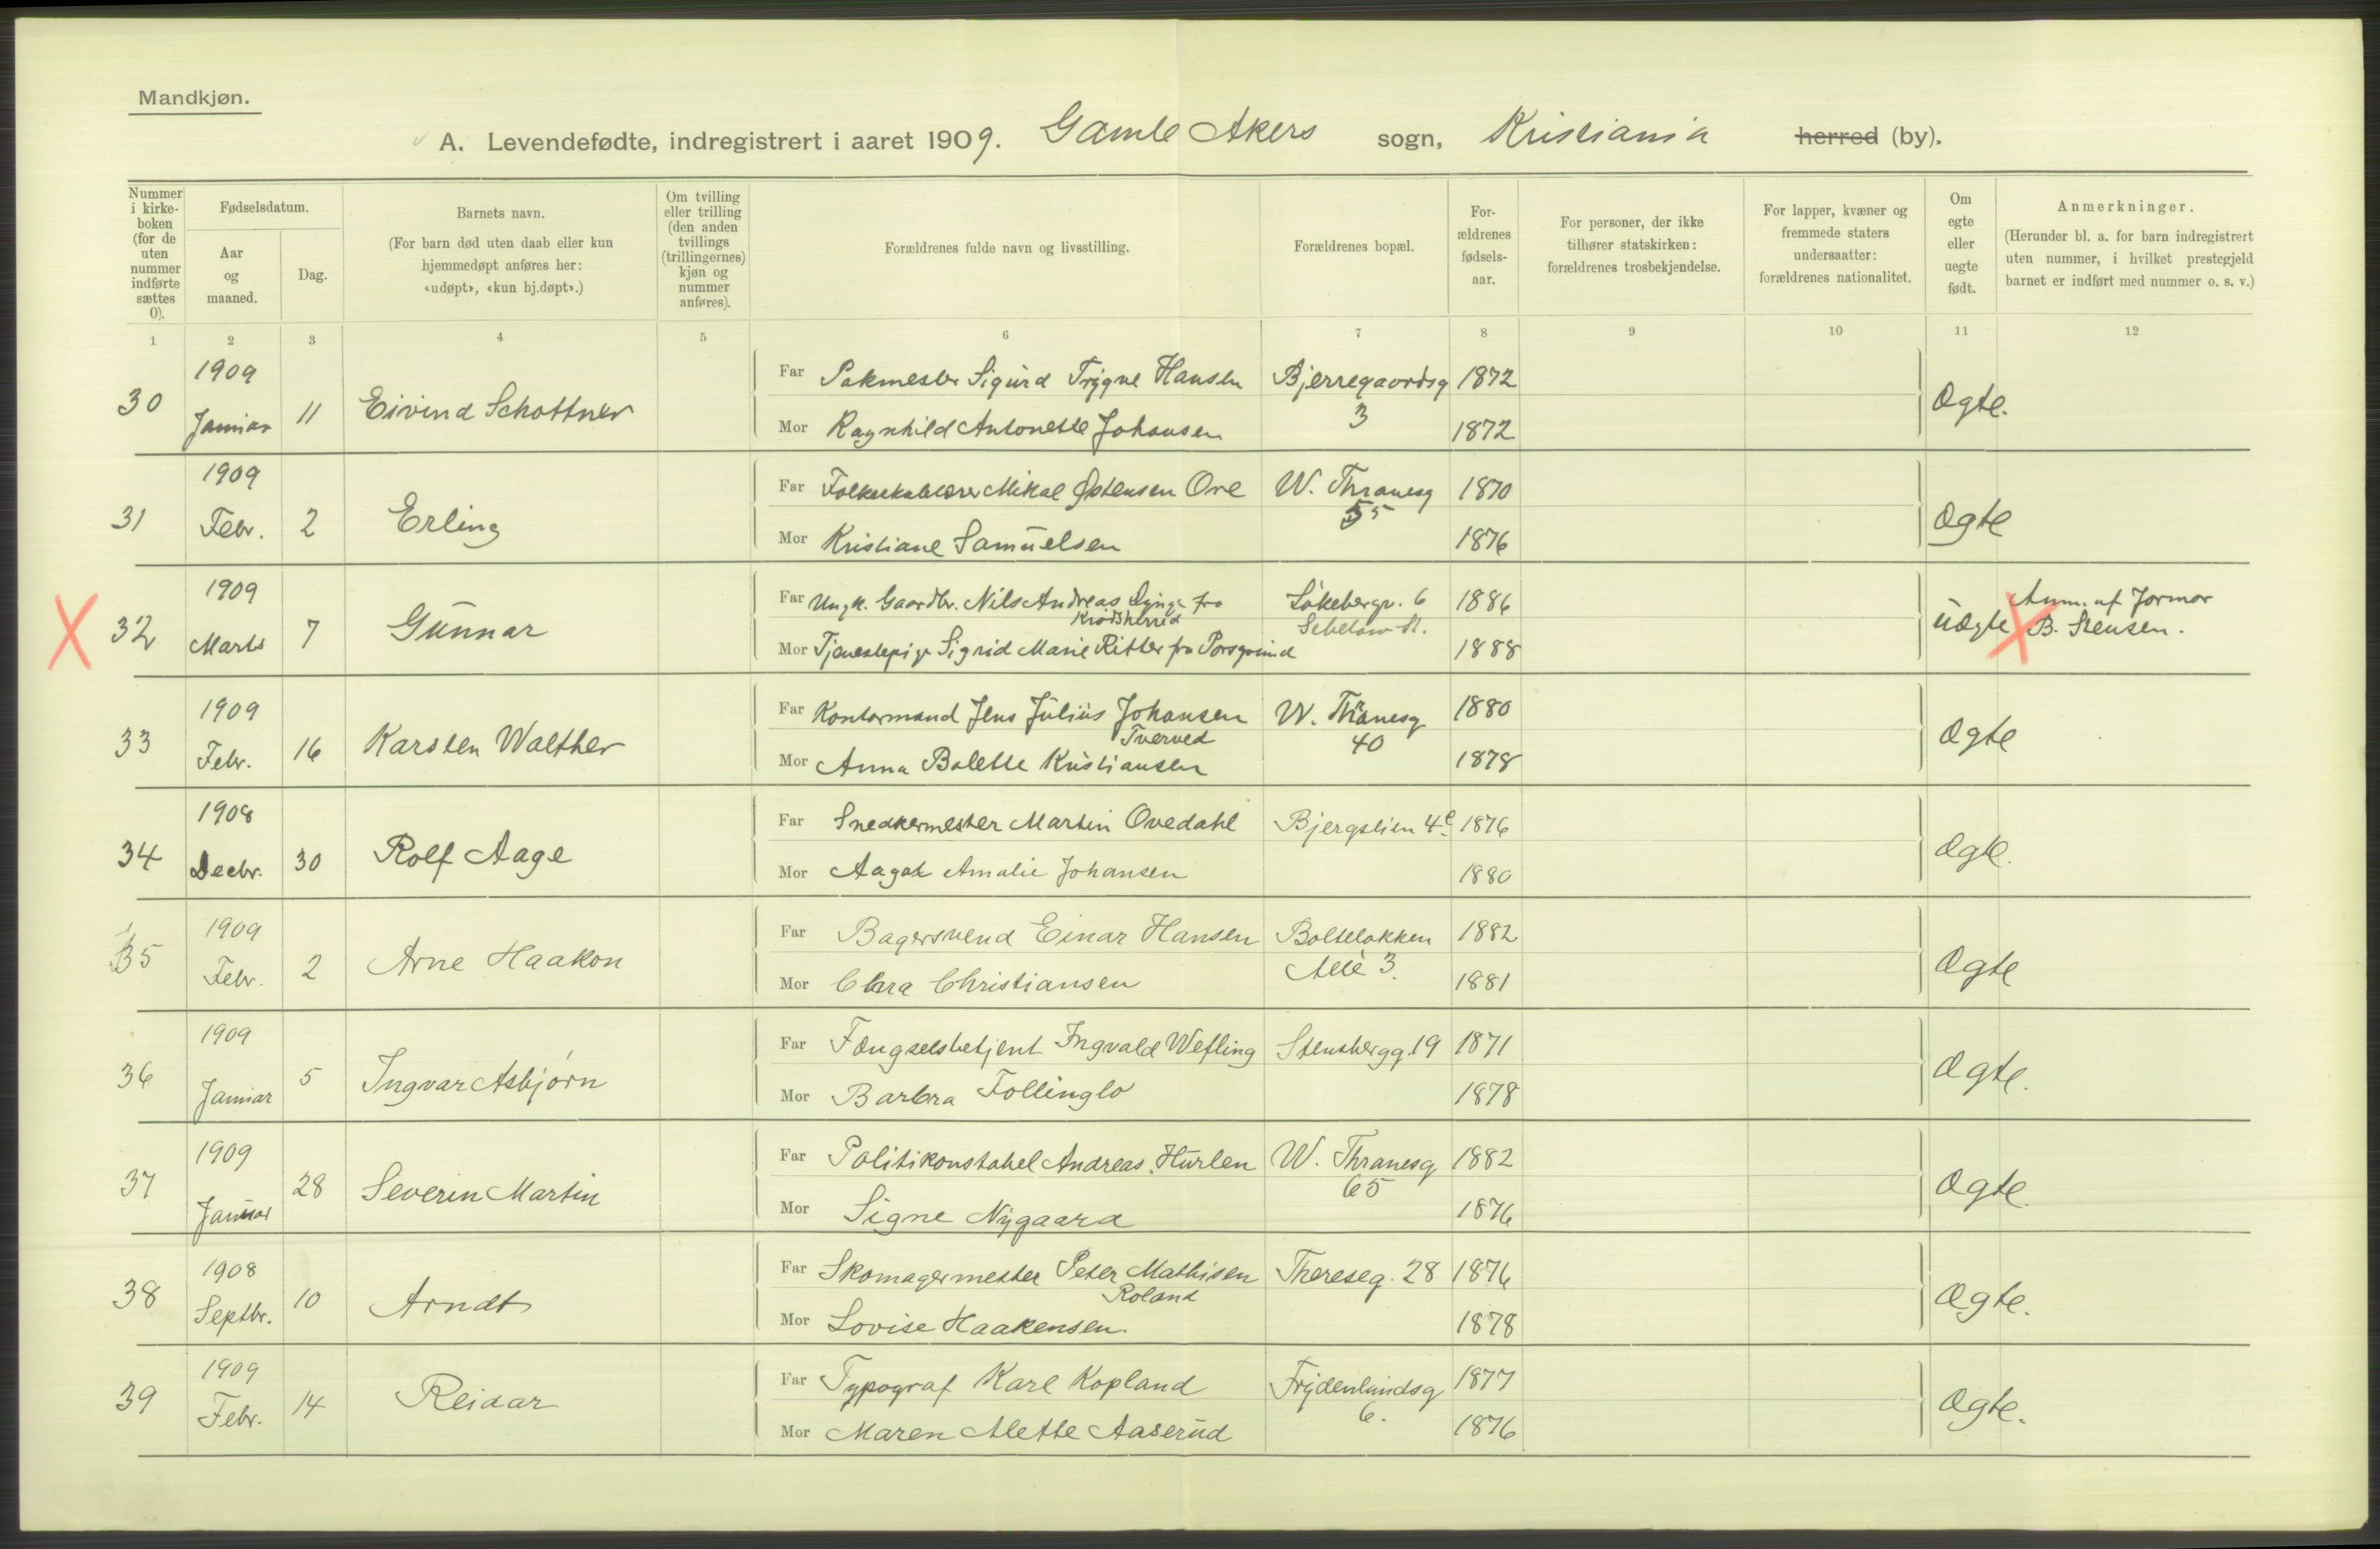 Mandkjøn.
A. Levendefødte, indregistrert i aaret 1909. Gamle Akers sogn, Kristiania herred (by).
Nummer i kirke-boken (for de uten nummer indførte sættes 0).
Fødselsdatum.
Aar og maaned.
Dag.
Barnets navn.
(For barn død uten daab eller kun hjemmedøpt anføres her: «udøpt», «kun hj.døpt».)
Om tvilling eller trilling (den anden tvillings (trillingernes) kjøn og nummer anføres).
Forældrenes fulde navn og livsstilling.
Forældrenes bopæl.
For-ældrenes fødsels-aar.
For personer, der ikke tilhører statskirken: forældrenes trosbekjendelse.
For lapper, kvæner og fremmede staters undersaatter: forældrenes nationalitet.
Om egte eller uegte født.
Anmerkninger.
(Herunder bl. a. for barn indregistrert uten nummer, i hvilket prestegjeld barnet er indført med nummer o. s. v.)
1 2 3 4 5 6 7 8 9 10 11 12
30 1909 Januar 11 Eivind Schøttner
Far Pakmester Sigurd Trygve Hansen Bjerregaardsg 3 1872
Mor Ragnhild Antonette Johansen 1872
Ægte.
31 1909 Febr. 2 Erling
Far Folkeskolelærer Mikal Østensen Ove W. Thranesg 55 1870
Mor Kristiane Samuelsen 1876
Ægte
X 32 1909 Marts 7 Gunnar
Far Ungk. Gaardbr. Nils Andreas fra Krødsherred Løkebergv. 6 1886
Mor Tjenestepige Sigrid Marie Ritter fra Porsgrund 1888
Uægte X Anm. af Jormor B. Stensen.
33 1909 Febr. 16 Karsten Walther
Far Kontormand Jens Julius Johansen Tverved W. Thranesg 40 1880
Mor Anna Balette Kristiansen 1878
Ægte
34 1908 Decbr. 30 Rolf Aage
Far Snedkermester Martin Ovedahl Bjergslien 4c 1876
Mor Aagot Amalie Johansen 1880
Ægte.
35 1909 Febr. 2 Arne Haakon
Far Bagersvend Einar Hansen Bolteløkken Allé 3. 1882
Mor Clara Christiansen 1881
Ægte
36 1909 Januar 5 Ingvar Asbjørn
Far Fængselsbetjent Ingvald Wefling Stensbergg. 19 1871
Mor Barbra Follinglo 1878
Ægte.
37 1909 Januar 28 Severin Martin
Far Politikonstabel Andreas Hurlen W. Thranesg 65 1882
Mor Signe Nygaard 1876
Ægte.
38 1908 Septbr. 10 Arndt
Far Skomagermester Peter Mathisen Roland Thereseg. 28 1876
Mor Lovise Haakensen. 1878
Ægte.
39 1909 Febr. 14 Reidar
Far Typograf Karl Kopland Frydenlundsg 6. 1877
Mor Maren Mette Aaserud 1876
Ægte.